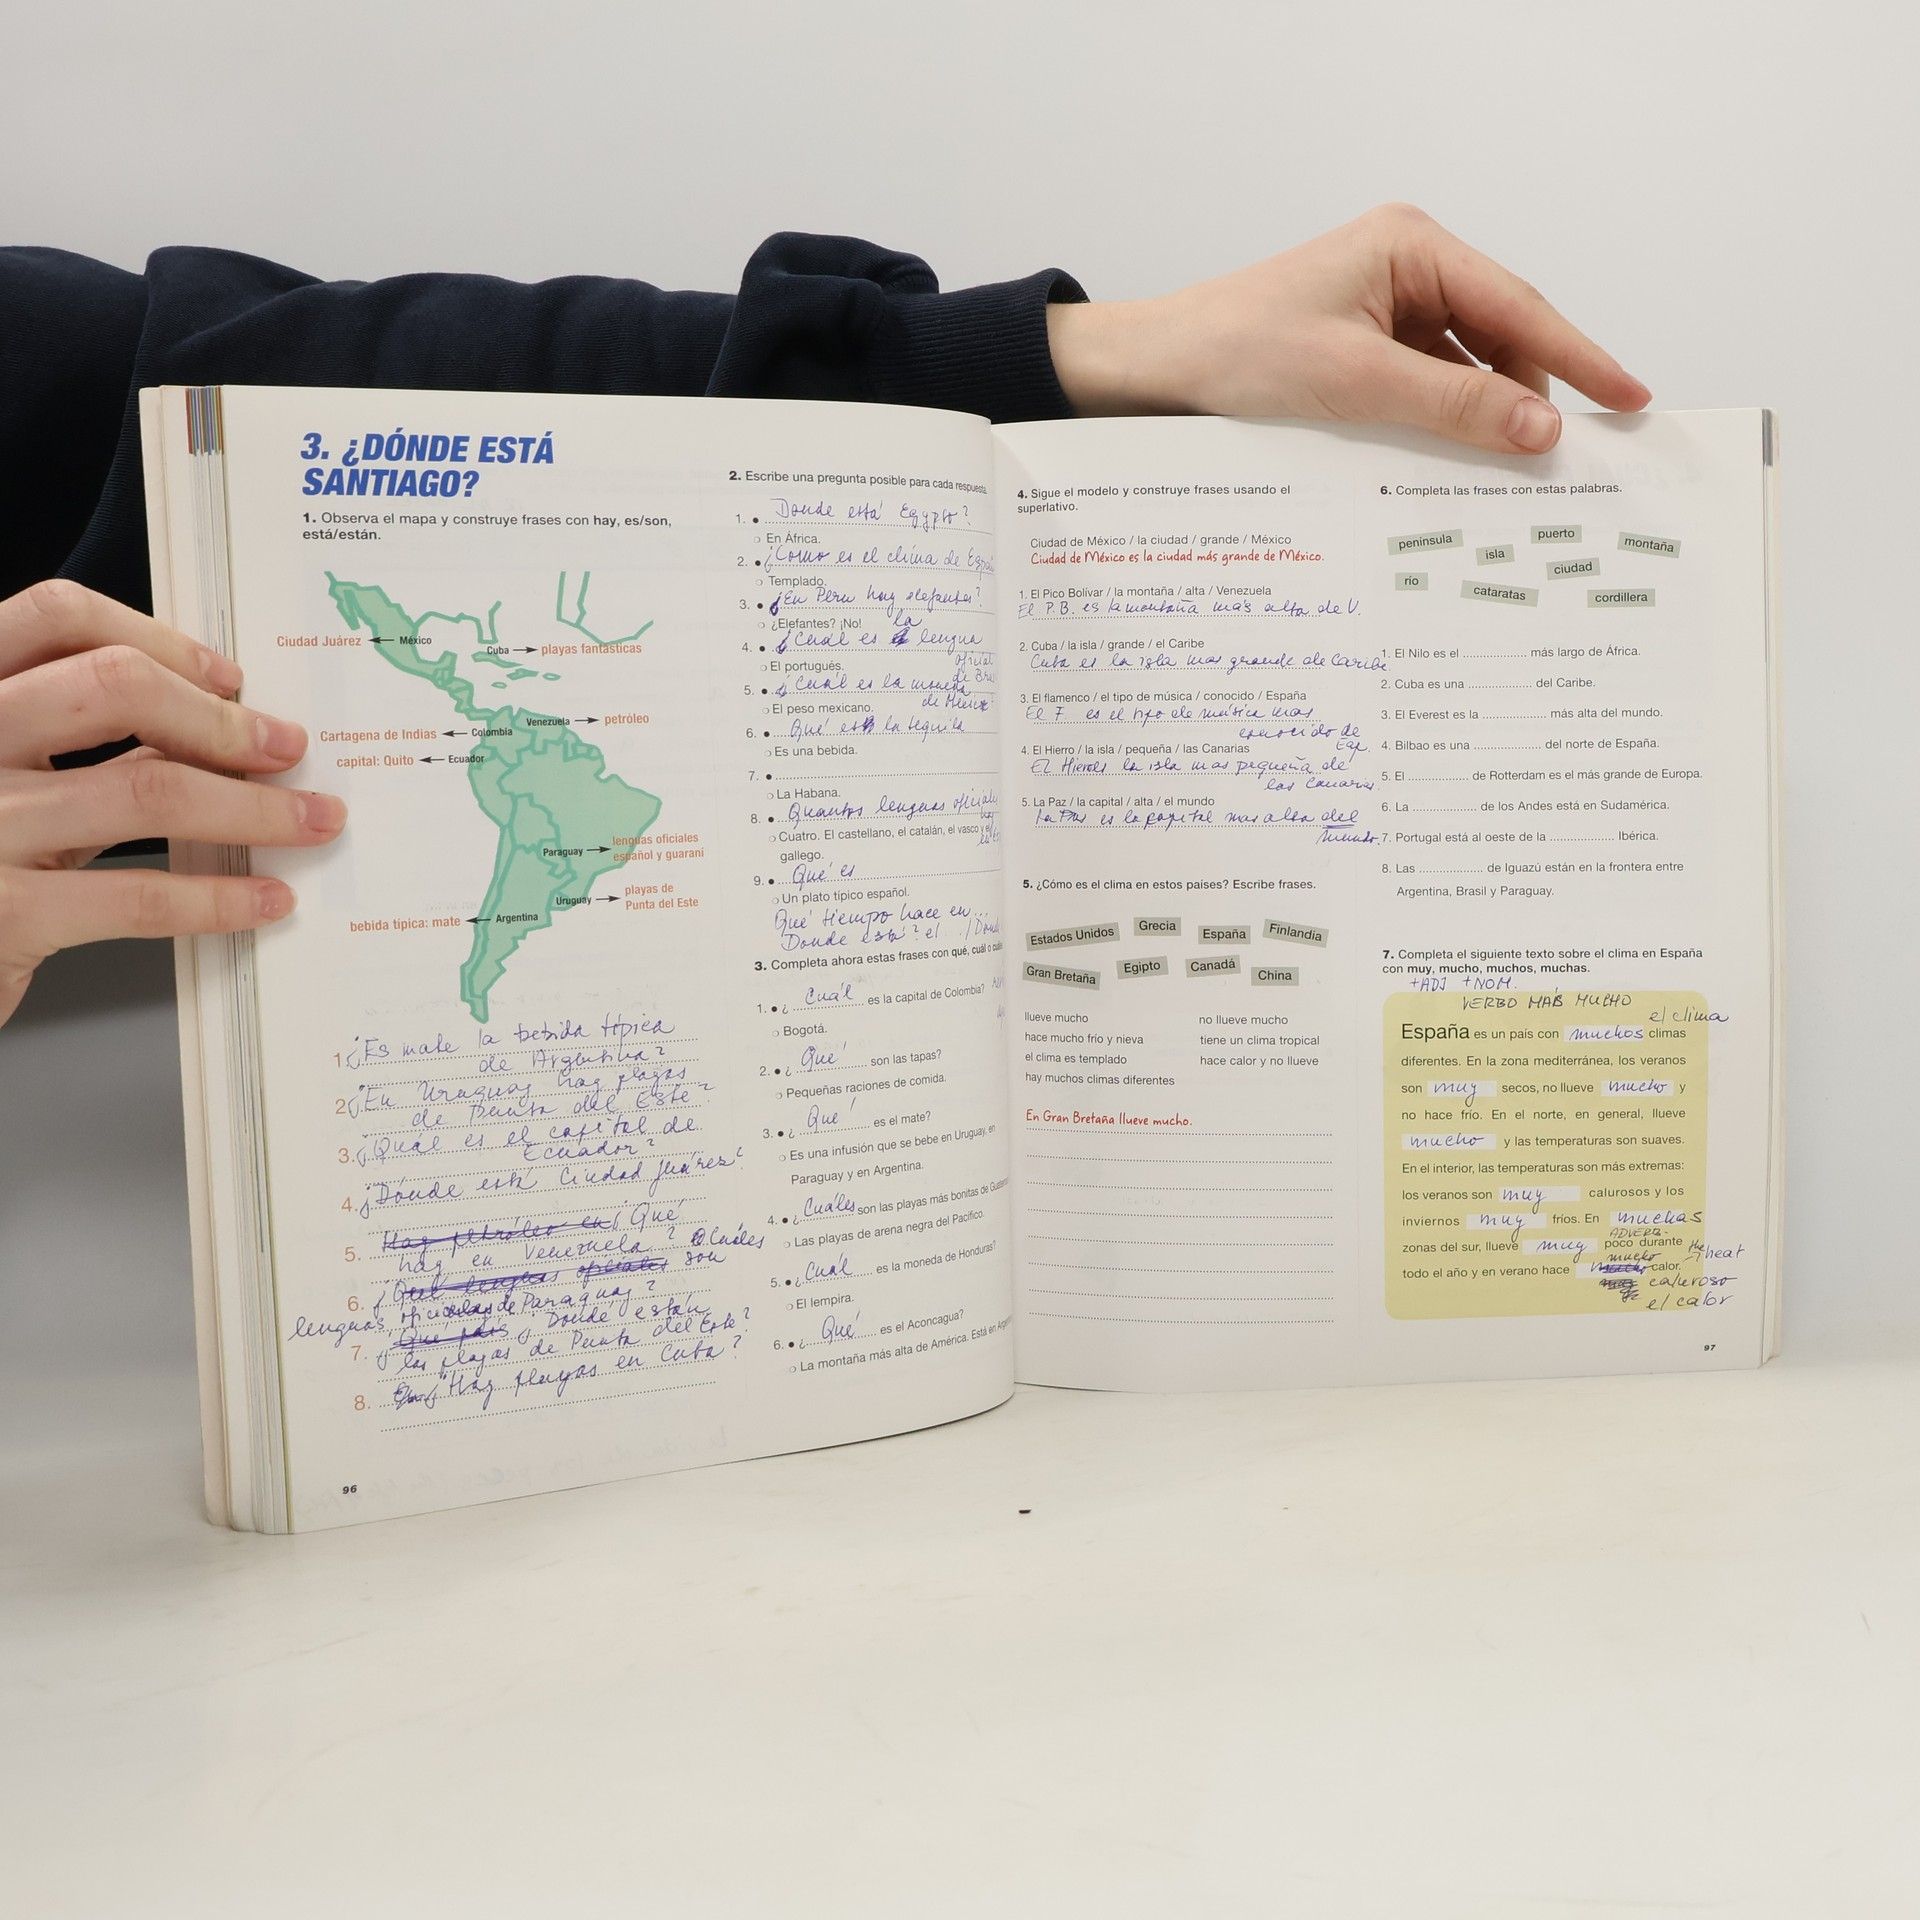 3. ¿DÓNDE ESTÁ
SANTIAGO?
1. Observa el mapa y construye frases con hay, es/son,
está/están.
Ciudad Juárez
México
Cuba
playas fantásticas
Venezuela
petróleo
Cartagena de Indias
Colombia
capital: Quito
Ecuador
lenguas oficiales
español y guaraní
Paraguay
playas de
Punta del Este
Uruguay
bebida típica: mate
Argentina
1. ¿Es mate la bebida típica
de Argentina?
2. ¿En Uruguay hay playas
de Punta del Este?
3. ¿Quál es el capital de
Ecuador?
4. ¿Dónde está Ciudad Juárez?
5. Hay petróleo en Qué
hay en Venezuela? Cuáles
6. ¿Qué lenguas oficiales son
lenguas oficiales de Paraguay?
7. ¿Qué país ¿Donde están
las playas de Punta del Este?
8. ¿Hay playas en Cuba?
96
2. Escribe una pregunta posible para cada respuesta.
1. Donde está Egypto?
En África.
2. ¿Como es el clima de
Templado.
3. ¿En Peru hay elefantes?
¿Elefantes? ¡No!
la
4. ¿Cuál es lengua
oficial
El portugués.
de
5. ¿Cuál es la moneda
El peso mexicano.
6. Qué es la tequila
Es una bebida.
7.
La Habana.
8. Quantos lenguas
Cuatro. El castellano, el catalán, el vasco y el
gallego.
9. Qué es
Un plato típico español.
Qué tiempo hace en...
Donde está? el
3. Completa ahora estas frases con qué, cuál o
1. ¿ Cuál es la capital de Colombia?
Bogotá.
2. ¿ Qué son las tapas?
Pequeñas raciones de comida.
3. ¿ Qué es el mate?
Es una infusión que se bebe en Uruguay, en
Paraguay y en Argentina.
4. ¿ Cuáles son las playas más bonitas de
Las playas de arena negra del Pacífico.
5. ¿ Cuál es la moneda de Honduras?
El lempira.
6. ¿ Qué es el Aconcagua?
La montaña más alta de América. Está en
4. Sigue el modelo y construye frases usando el
superlativo.
Ciudad de México / la ciudad / grande / México
Ciudad de México es la ciudad más grande de México.
1. El Pico Bolívar / la montaña / alta / Venezuela
El P.B. es la montaña más alta de V.
2. Cuba / la isla / grande / el Caribe
Cuba es la isla mas grande de Caribe
3. El flamenco / el tipo de música / conocido / España
El F. es el tipo de música mas
conocido de
Esp.
4. El Hierro / la isla / pequeña / las Canarias
El la isla mas pequeña de
las Canarias.
5. La Paz / la capital / alta / el mundo
La Paz es la capital mas alta del
mundo.
5. ¿Cómo es el clima en estos países? Escribe frases.
Estados Unidos
Grecia
España
Finlandia
Gran Bretaña
Egipto
Canadá
China
llueve mucho
hace mucho frío y nieva
el clima es templado
hay muchos climas diferentes
no llueve mucho
tiene un clima tropical
hace calor y no llueve
En Gran Bretaña llueve mucho.
6. Completa las frases con estas palabras.
península
isla
puerto
montaña
río
cataratas
ciudad
cordillera
1. El Nilo es el ............... más largo de África.
2. Cuba es una ............... del Caribe.
3. El Everest es la ............... más alta del mundo.
4. Bilbao es una ............... del norte de España.
5. El ............... de Rotterdam es el más grande de Europa.
6. La ............... de los Andes está en Sudamérica.
7. Portugal está al oeste de la ............... Ibérica.
8. Las ............... de Iguazú están en la frontera entre
Argentina, Brasil y Paraguay.
7. Completa el siguiente texto sobre el clima en España
con muy, mucho, muchos, muchas.
+ADJ +NOM.
VERBO MÁS MUCHO
el clima
España es un país con muchos climas
diferentes. En la zona mediterránea, los veranos
son muy secos, no llueve mucho y
no hace frío. En el norte, en general, llueve
mucho y las temperaturas son suaves.
En el interior, las temperaturas son más extremas:
los veranos son muy calurosos y los
inviernos muy fríos. En muchas
ADVERB.
zonas del sur, llueve muy poco durante
mucho the heat
todo el año y en verano hace mucho calor.
caluroso
el calor
97